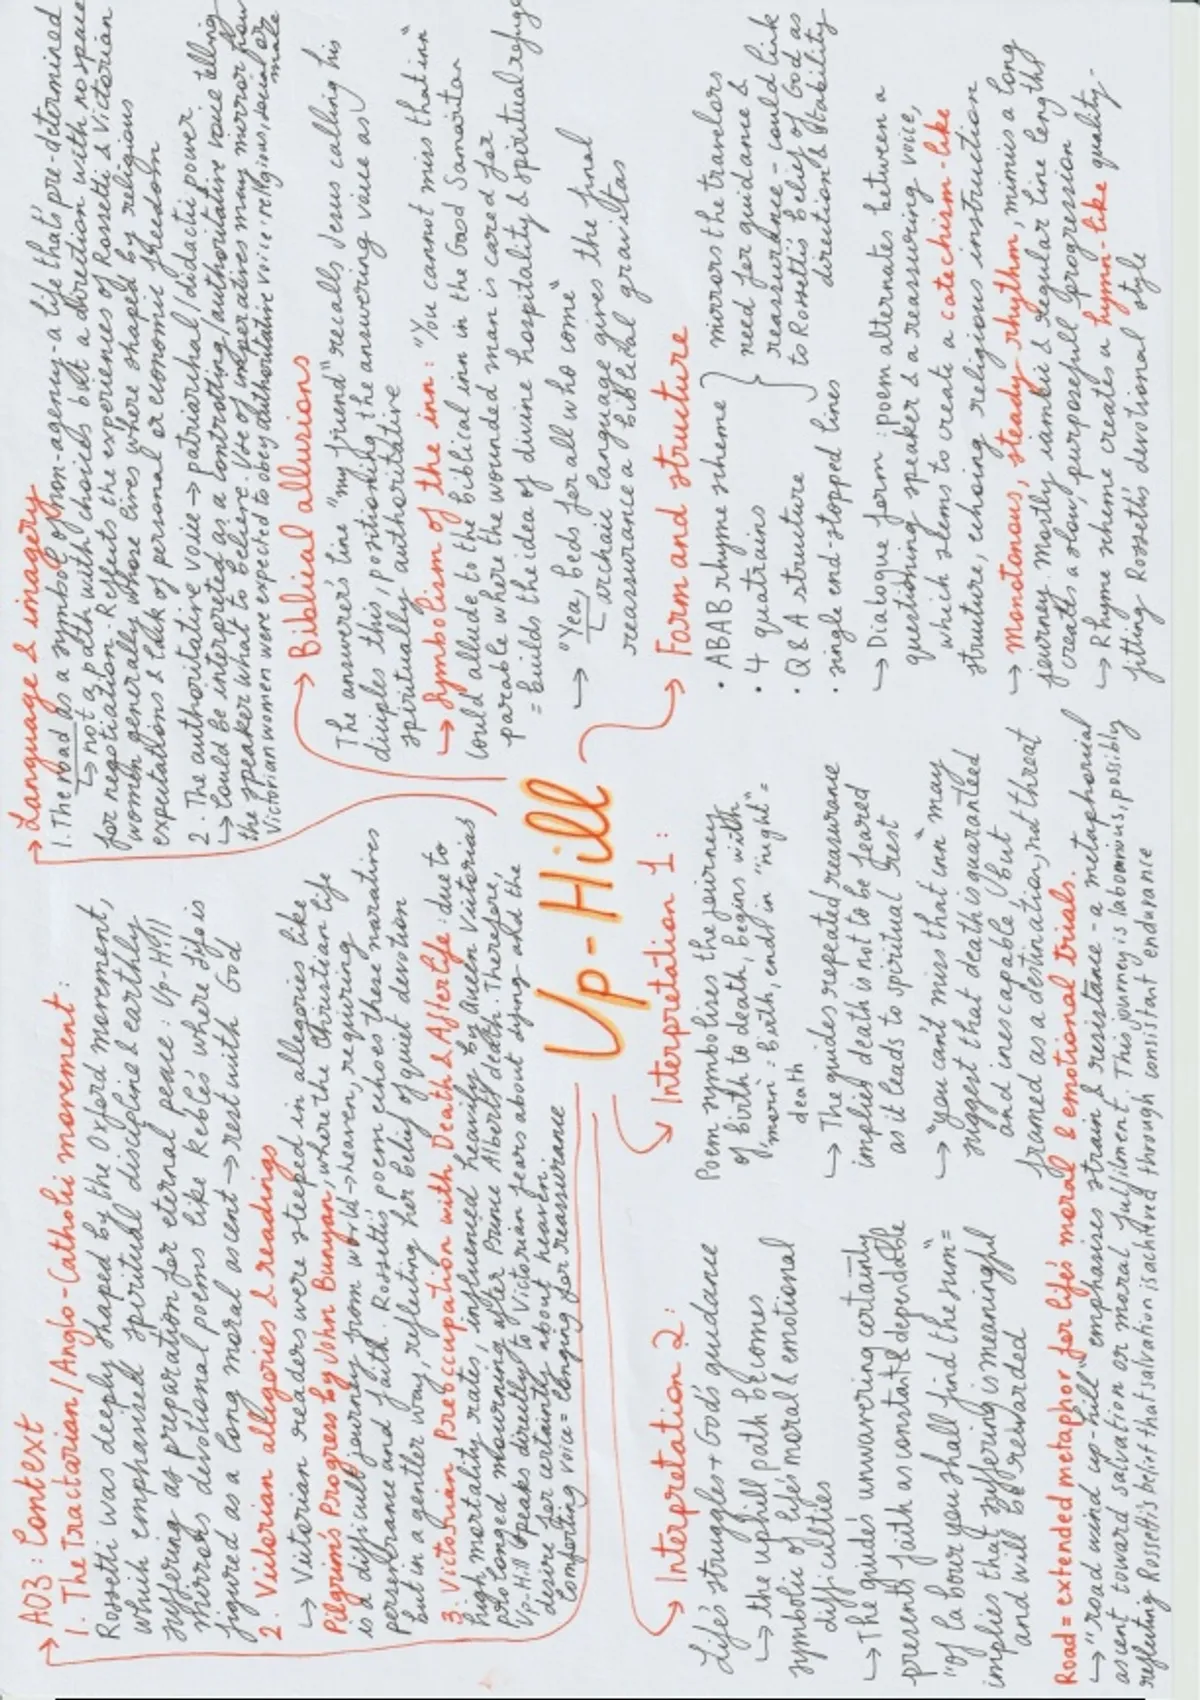 → AO3: Context
1. The Tractarian/Anglo-Catholic movement:
Rossetti was deeply shaped by the Oxford movement,
which emphasised spiritual discipline & earthly
suffering as preparation for eternal peace: Up-Hill
mirrors devotional poems like Keble's where life is
figured as a long moral ascent → rest with God
2. Victorian allegories & readings
↳ Victorian readers were steeped in allegories like
Pilgrim's Progress by John Bunyan, where the christian life
is a difficult journey from world → heaven, requiring
perserverance and faith. Rossetti's poem echoes these narratives
but in a gentler way, reflecting her belief of quiet devotion
3. Victorian Preoccupation with Death & Afterlife: due to
high mortality rates, influenced heavily by Queen Victoria's
prolonged mourning after Prince Albert's death. Therefore,
Up-Hill speaks directly to Victorian fears about dying and the
desire for certainty about heaven.
Comforting voice = longing for reassurance
→ Language & imagery
1. The road as a symbol of non-agency - a life that's pre-determined
↳ not a path with choices but a direction with no space
for negotiation. Reflects the experiences of Rossetti & Victorian
women generally whose lives where shaped by religious
expectations & lack of personal or economic freedom
2. The authoritative voice → patriarchal/didactic power
↳ Could be interpreted as a controlling/authoritative voice telling
the speaker what to believe. Use of imperatives may mirror how
Victorian women were expected to obey authoritative voice: religious, social or
male
→ Biblical allusions
The answerer's line "my friend" recalls Jesus calling his
disciples this, positioning the answering voice as
spiritually authoritative
↳ Symbolism of the inn: "You cannot miss that inn"
Could allude to the biblical inn in the Good Samaritan
parable where the wounded man is cared for
= builds the idea of divine hospitality & spiritual refuge
↳ "Yea, beds for all who come"
↳ archaic language gives the final
reassurance a biblical gravitas
Up-Hill
→ Interpretation 2:
Life's struggles + God's guidance
↳ the uphill path becomes
symbolic of life's moral & emotional
difficulties
↳ The guide's unwavering certainty
presents faith as constant & dependable
"of labour you shall find the sum" =
implies that suffering is meaningful
and will be rewarded
→ Interpretation 1:
Poem symbolises the journey
of birth to death, begins with
"morn" = birth, ends in "night" =
death
↳ The guides repeated reassurance
implies death is not to be feared
as it leads to spiritual rest
↳ "you can't miss that inn" may
suggest that death is guaranteed
and inescapable (but
framed as a destination, not threat
Road = extended metaphor for life's moral & emotional trials.
↳ "road wind up-hill" emphasises strain & resistance - a metaphorial
ascent toward salvation or moral fulfilment. This journey is laborious, possibly
reflecting Rossetti's belief that salvation is achieved through consistent endurance
→ Form and structure
• ABAB rhyme scheme
• 4 quatrains
• Q&A structure
• single end-stopped lines
mirrors the travelers
need for guidance &
reassurance - could link
to Rossetti's belief of God as
direction & stability
↳ Dialogue form: poem alternates between a
questioning speaker & a reassuring voice,
which seems to create a catechism-like
structure, echoing religious instruction
↳ Monotonous, steady rhythm, mimics a long
journey. Mostly iambic & regular line lengths
creates a slow, purposeful progression
↳ Rhyme scheme creates a hymn-like quality -
fitting Rossetti's devotional style